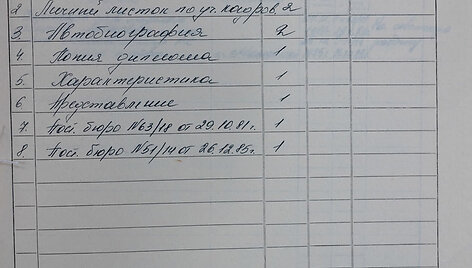 2 Личный листок по уч. кадров. 2
3. Автобиография 2
4. Копия диплома 1
5. Характеристика 1
6 Представление 1
7. Пост. бюро №63/18 от 29.10.81г. 1
8. Пост. бюро №51/14 от 26.12.85г. 1